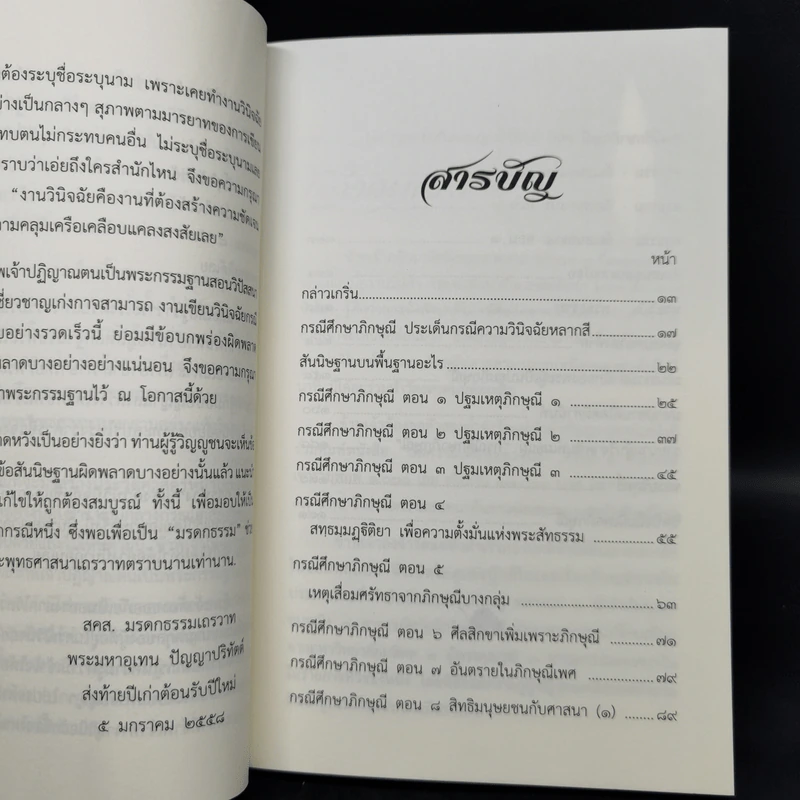 ต้องระบุชื่อระบุนาม เพราะเคยทำงานวินิจฉัย
งเป็นกลางๆ สุภาพตามมารยาทของการเขียน
ทบตนไม่กระทบคนอื่น ไม่ระบุชื่อระบุนามเลย
ราบว่าเอ่ยถึงใครสำนักไหน จึงขอความกรุณา
"งานวินิจฉัยคืองานที่ต้องสร้างความชัดเจน
ามคลุมเครือเคลือบแคลงสงสัยเลย"
พเจ้าปฏิญาณตนเป็นพระกรรมฐานสอนวิปัสสนา
ชี่ยวชาญเก่งกาจสามารถ งานเขียนวินิจฉัยกรณี
บอย่างรวดเร็วนี้ ย่อมมีข้อบกพร่องผิดพลาด
ลาดบางอย่างอย่างแน่นอน จึงขอความกรุณา
าพระกรรมฐานไว้ ณ โอกาสนี้ด้วย
าดหวังเป็นอย่างยิ่งว่า ท่านผู้รู้วิญญูชนจะเห็น
ข้อสันนิษฐานผิดพลาดบางอย่างนั้นแล้ว แนะนำ
แก้ไขให้ถูกต้องสมบูรณ์ ทั้งนี้ เพื่อมอบให้เป็น
ากรณีหนึ่ง ซึ่งพอเพื่อเป็น "มรดกธรรม"
ะพุทธศาสนาเถรวาทตราบนานเท่านาน.
สคส. มรดกธรรมเถรวาท
พระมหาอุเทน ปัญญาปริทัตต์
ส่งท้ายปีเก่าต้อนรับปีใหม่
๕ มกราคม ๒๕๕๘
สารบัญ
หน้า
กล่าวเกริ่น....................๑๓
กรณีศึกษาภิกษุณี ประเด็นกรณีความวินิจฉัยหลากสี....................๑๗
สันนิษฐานบนพื้นฐานอะไร....................๒๒
กรณีศึกษาภิกษุณี ตอน ๑ ปฐมเหตุภิกษุณี ๑ ....................๒๕
กรณีศึกษาภิกษุณี ตอน ๒ ปฐมเหตุภิกษุณี ๒ ....................๓๗
กรณีศึกษาภิกษุณี ตอน ๓ ปฐมเหตุภิกษุณี ๓ ....................๔๕
กรณีศึกษาภิกษุณี ตอน ๔
สทฺธมฺมฏฺฐิติยา เพื่อความตั้งมั่นแห่งพระสัทธรรม ....................๕๕
กรณีศึกษาภิกษุณี ตอน ๕
เหตุเสื่อมศรัทธาจากภิกษุณีบางกลุ่ม ....................๖๓
กรณีศึกษาภิกษุณี ตอน ๖ ศีลสิกขาเพิ่มเพราะภิกษุณี ....................๗๑
กรณีศึกษาภิกษุณี ตอน ๗ อันตรายในภิกษุณีเพศ ....................๗๙
กรณีศึกษาภิกษุณี ตอน ๘ สิทธิมนุษยชนกับศาสนา (๑) .......๘๙